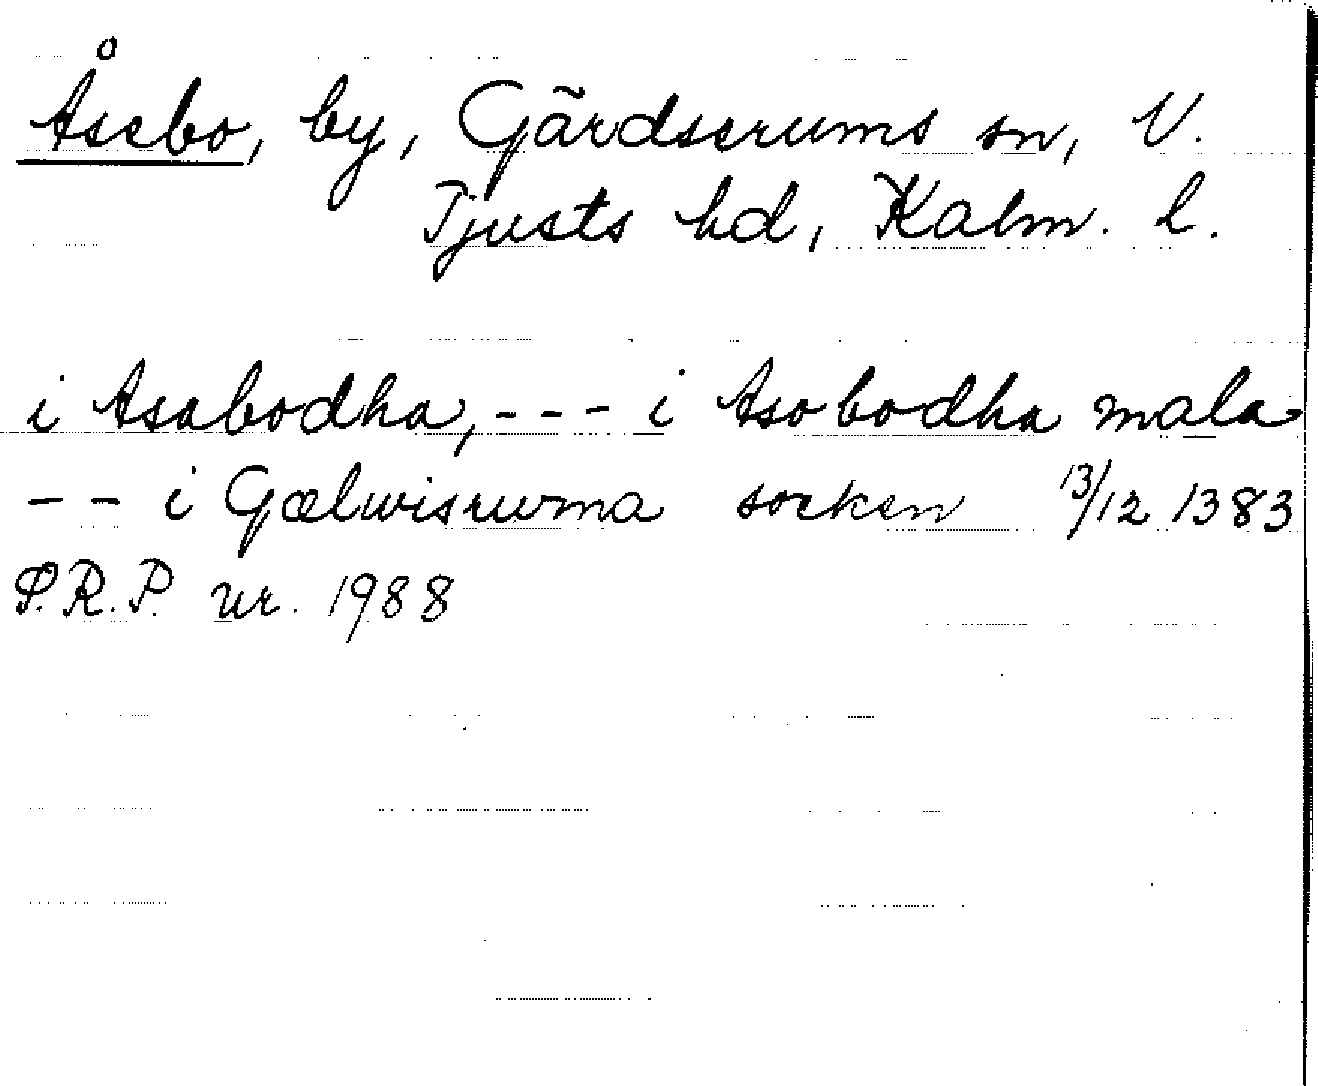 Åsebo, by, Gärdserums sn, V.
Tjusts hd, Kalm. l.
i Asabodha, - - - i Asobodha mala
- - i Gælwisruma socken 13/12 1383
P.R.P. nr. 1988